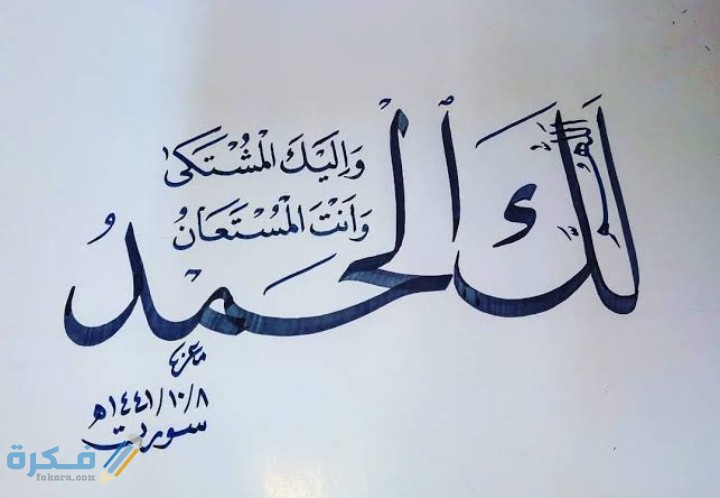 اللهم
لَكَ الْحَمدُ
وَإِلَيْكَ الْمُشْتَكَى
وَأَنْتَ الْمُسْتَعَانُ
١٤٤١/١٠/٨هـ
فكرة
fekera.com